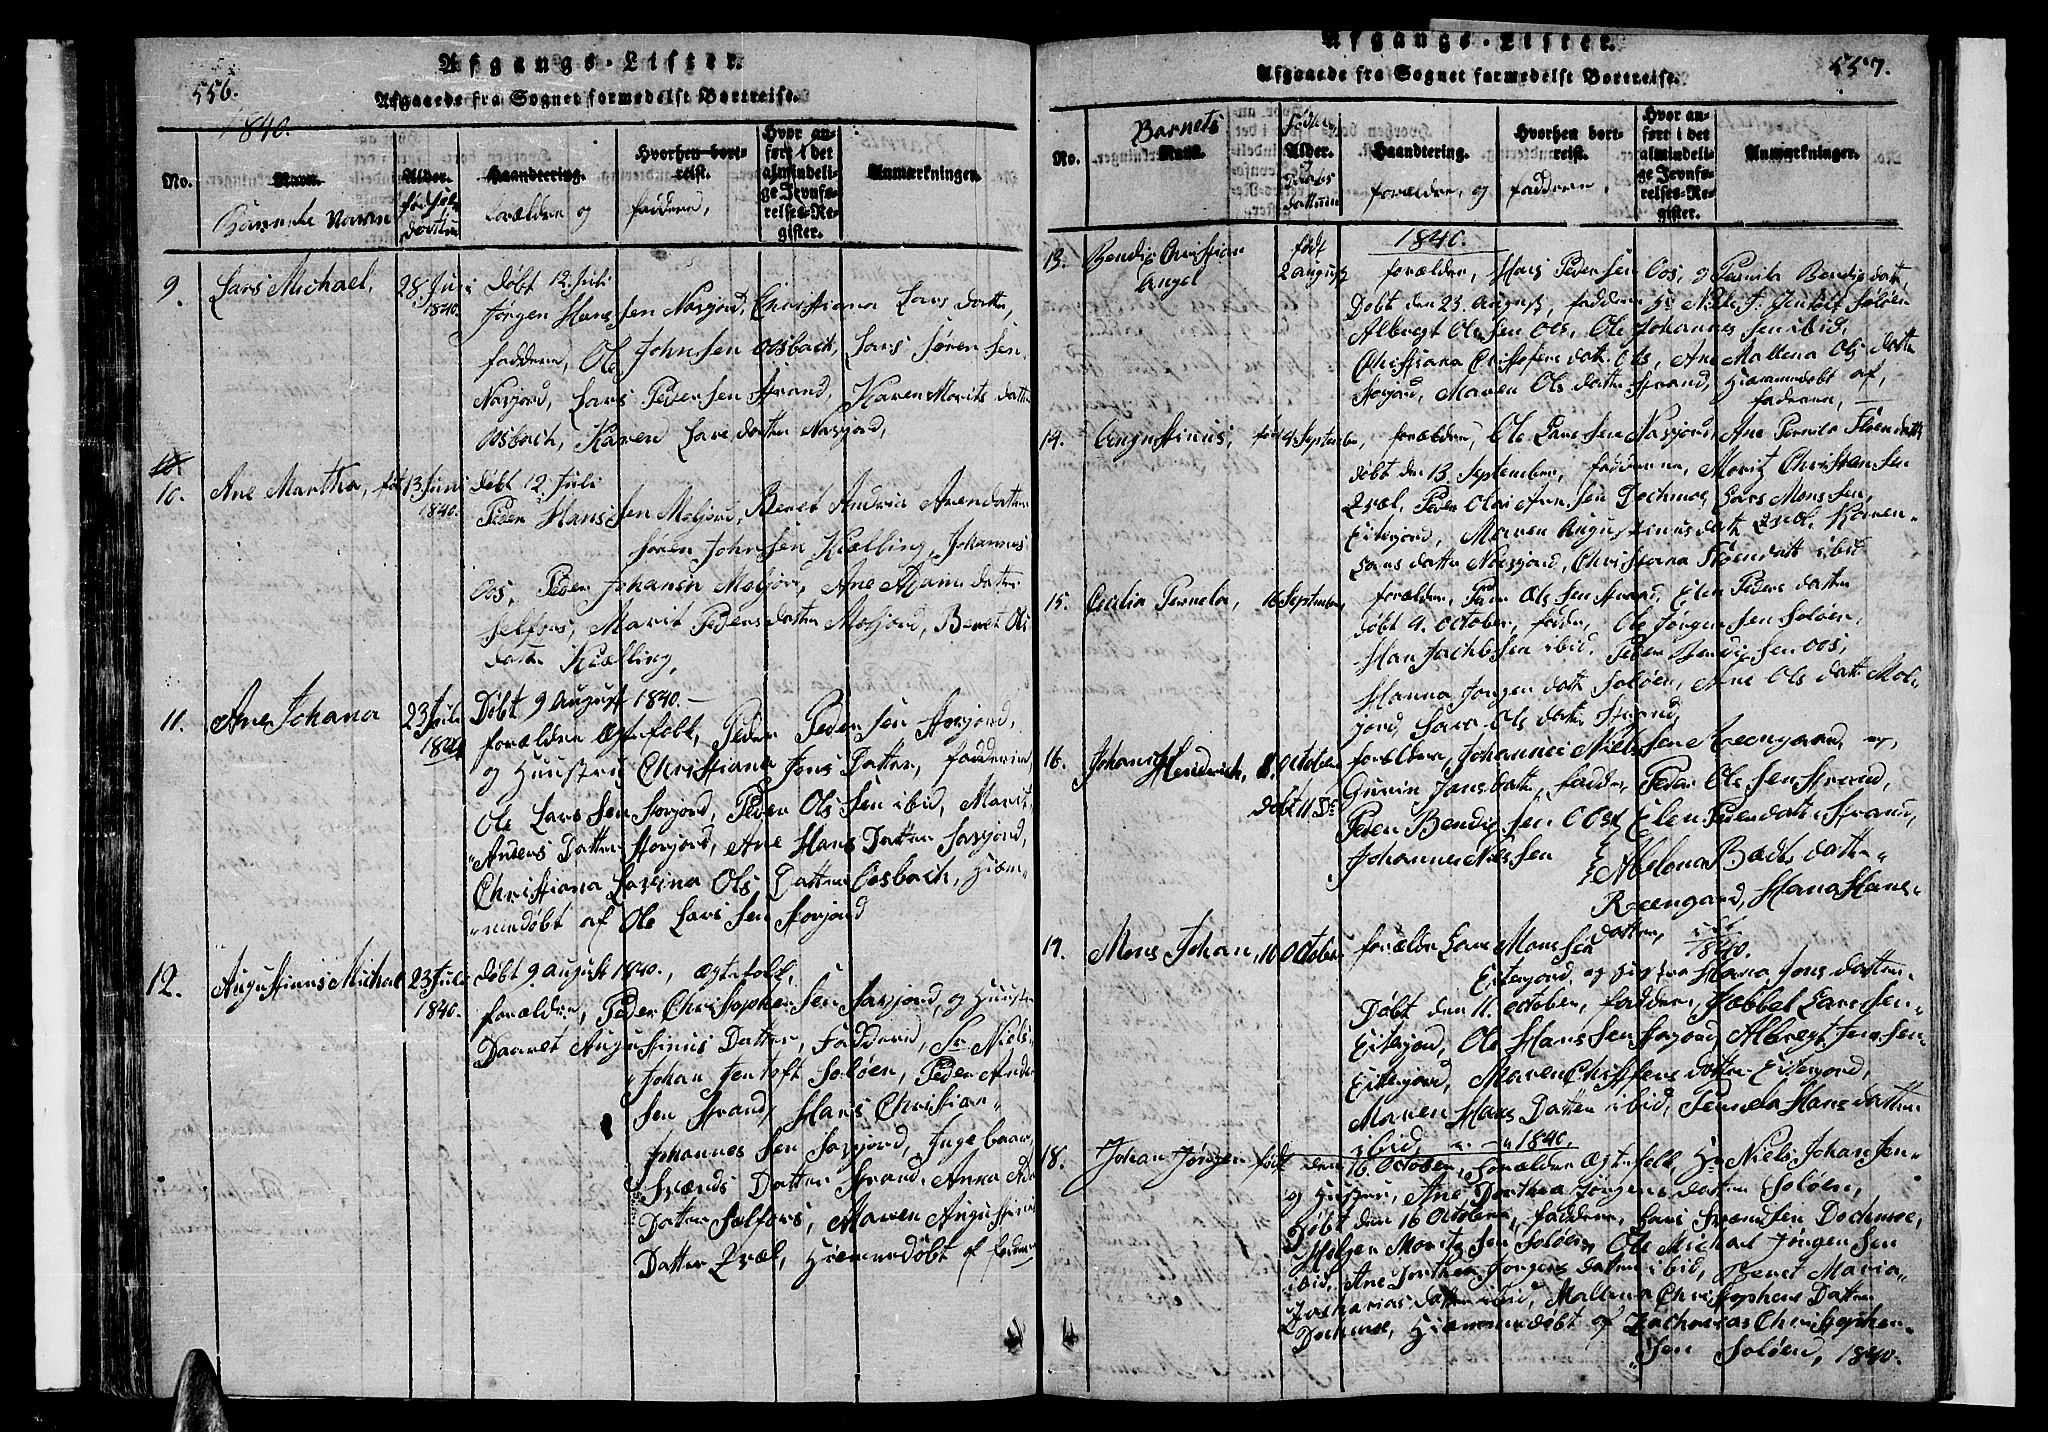 556.
Afgangs-Lister.
Afgaaede fra Sognet formedelst Bortreise.
1840.
No.
Navn.
Alder.
Haandtering.
Hvorhen bortreist.
Hvor anført i det almindelige Jevnførelses-Register.
Anmærkninger.
Navn
forældre og
faddere,
9. Lars Michael, 28 Juni døbt 12. Juli
1840. Jørgen Hans Sen Nasjord, Christiana Lars datter,
faddere, Ole John Sen Oosbach, Lars Søren Sen
Nasjord, Lars Peder Sen Strand, Karen Morits datter
Oosbach, Karen Lars datter Nasjord,
10.
10. Ane Martha, 13 Juni døbt 12. Juli
1840. Peder Hans Sen Meljord, Beret Andrea datter
Søren John Sen Kielling, Johannes
Oos, Peder Johan Meljord, Ane datter
Selfors, Marit Peders datter Meljord, Beret Ols
datter Kielling,
11. Ane Johana 23 Juli Døbt 9 august 1840.
1840 forældre Ægtefolk, Peder Peder Sen Storjord,
og Huustru Christiana Jons Datter, fadderne,
Ole Lars Sen Storjord, Peder Ols Sen ibid, Marit
Anders Datter Storjord, Ane Hans Datter Sasjord,
Christiana Lovina Ols Datter Oosbach, Hiem-
medøbt af Ole Lars Sen Storjord
12. Augustinus Michal 23 Juli døbt 9 august 1840., Ægtefolk,
1840. forældre, Peder Christopher Sen Sasjord, og Huustru
Daaret Augustinus Datter, Faddere, Niels
Johan Jentoft Soløen, Peder Anders
Sen Strand, Hans Christian
Johannes Sen Sasjord, Ingebaar
Svends Datter Strand, Anna
Datter Selfors, Maren Augustinus
Datter Qvæl, Hiemmedøbt af
557.
Afgangs-Lister.
Afgaaede fra Sognet formedelst Bortreise.
No.
Barnets
Navn.
Alder.
Haandtering.
Hvorhen bortreist.
Hvor anført i det almindelige Jevnførelses-Register.
Anmærkninger.
forældre, og
faddere,
1840.
13. Bendix Christian født
Angel 2 august forældre, Hans Peder Sen Oos, og Pernila Bendix datter,
Døbt den 23. august, faddere Hr Niels J. Jentoft Soløen
Albregt Ole Sen Oos, Ole Johannes Sen ibid,
Christiana Christofers datter Oos, Ane Mallena Ols datter
Storjord, Maren Ols datter Strand, Hiemmedøbt af,
faderen,
14. Augustinus, 4 September, forældre, Ole Lars Sen Nasjord, Ane Pernila
døbt den 13. September, fadderne, Moritz Christen Sen
Qvæl, Peder Olai Arn Sen Dochmoe, Lars Mons Sen,
Eiterjord, Maren Augustinus datt Qvæl, Karen
Lars datter Nasjord, Christiana ibid
15. Cecilia Pernela, 16 September, forældre, Peder Ols Sen Strand, Elen Peders datter
døbt 4. October, fadder, Ole Jørgen Sen Soløen,
Hans Jachob Sen ibid, Peder Bendix Sen Oos,
Hanna Jørgen datt Soløen, Ane Ols datter Mel-
jord, Sara Ols datter Strand,
16. Johan Hendrich, 8. October forældre, Johannes Niels Sen Reengaard, og,
døbt 11. Ds Guren Jons datter, fadder, Peder Ols Sen Strand,
Peder Bendix Sen Oos, Elen Peder datter Strand,
Johannes Niels Sen
Reengaard, Hana Hans
datter, ibid
1840.
17. Mons Johan, 10 October forældre Lars Mons Sen
Eiterjord, og Hustru Hana Jons datter
Døbt den 11. October, fadder, Habbel Lars Sen
Eiterjord, Ole Hans Sen Storjord, Albregt Jens Sen
Eiterjord, Maren datter Eiterjord,
Maren Hans Datter ibid, Pernela Hans datter
ibid, 1840.
18. Johan Jørgen, født den 16. October, forældre Ægtefolk, Hr Niels Johan Jen-
og Hustru, Ane Dorthea Jørgens datter Soløen,
Døbt den 16 October, faddere, Lars Svend Sen Dochmoe,
Holger Moritz Sen Soløen, Ole Michal Jørgen Sen
ibid, Ane Dorthea Jørgens datter ibid, Beret Maria
Zacharias datter ibid, Mallena Christophers Datter
Dochmoe, Hiemmedøbt af Zacharias Christopher-
Sen Soløen, 1840.